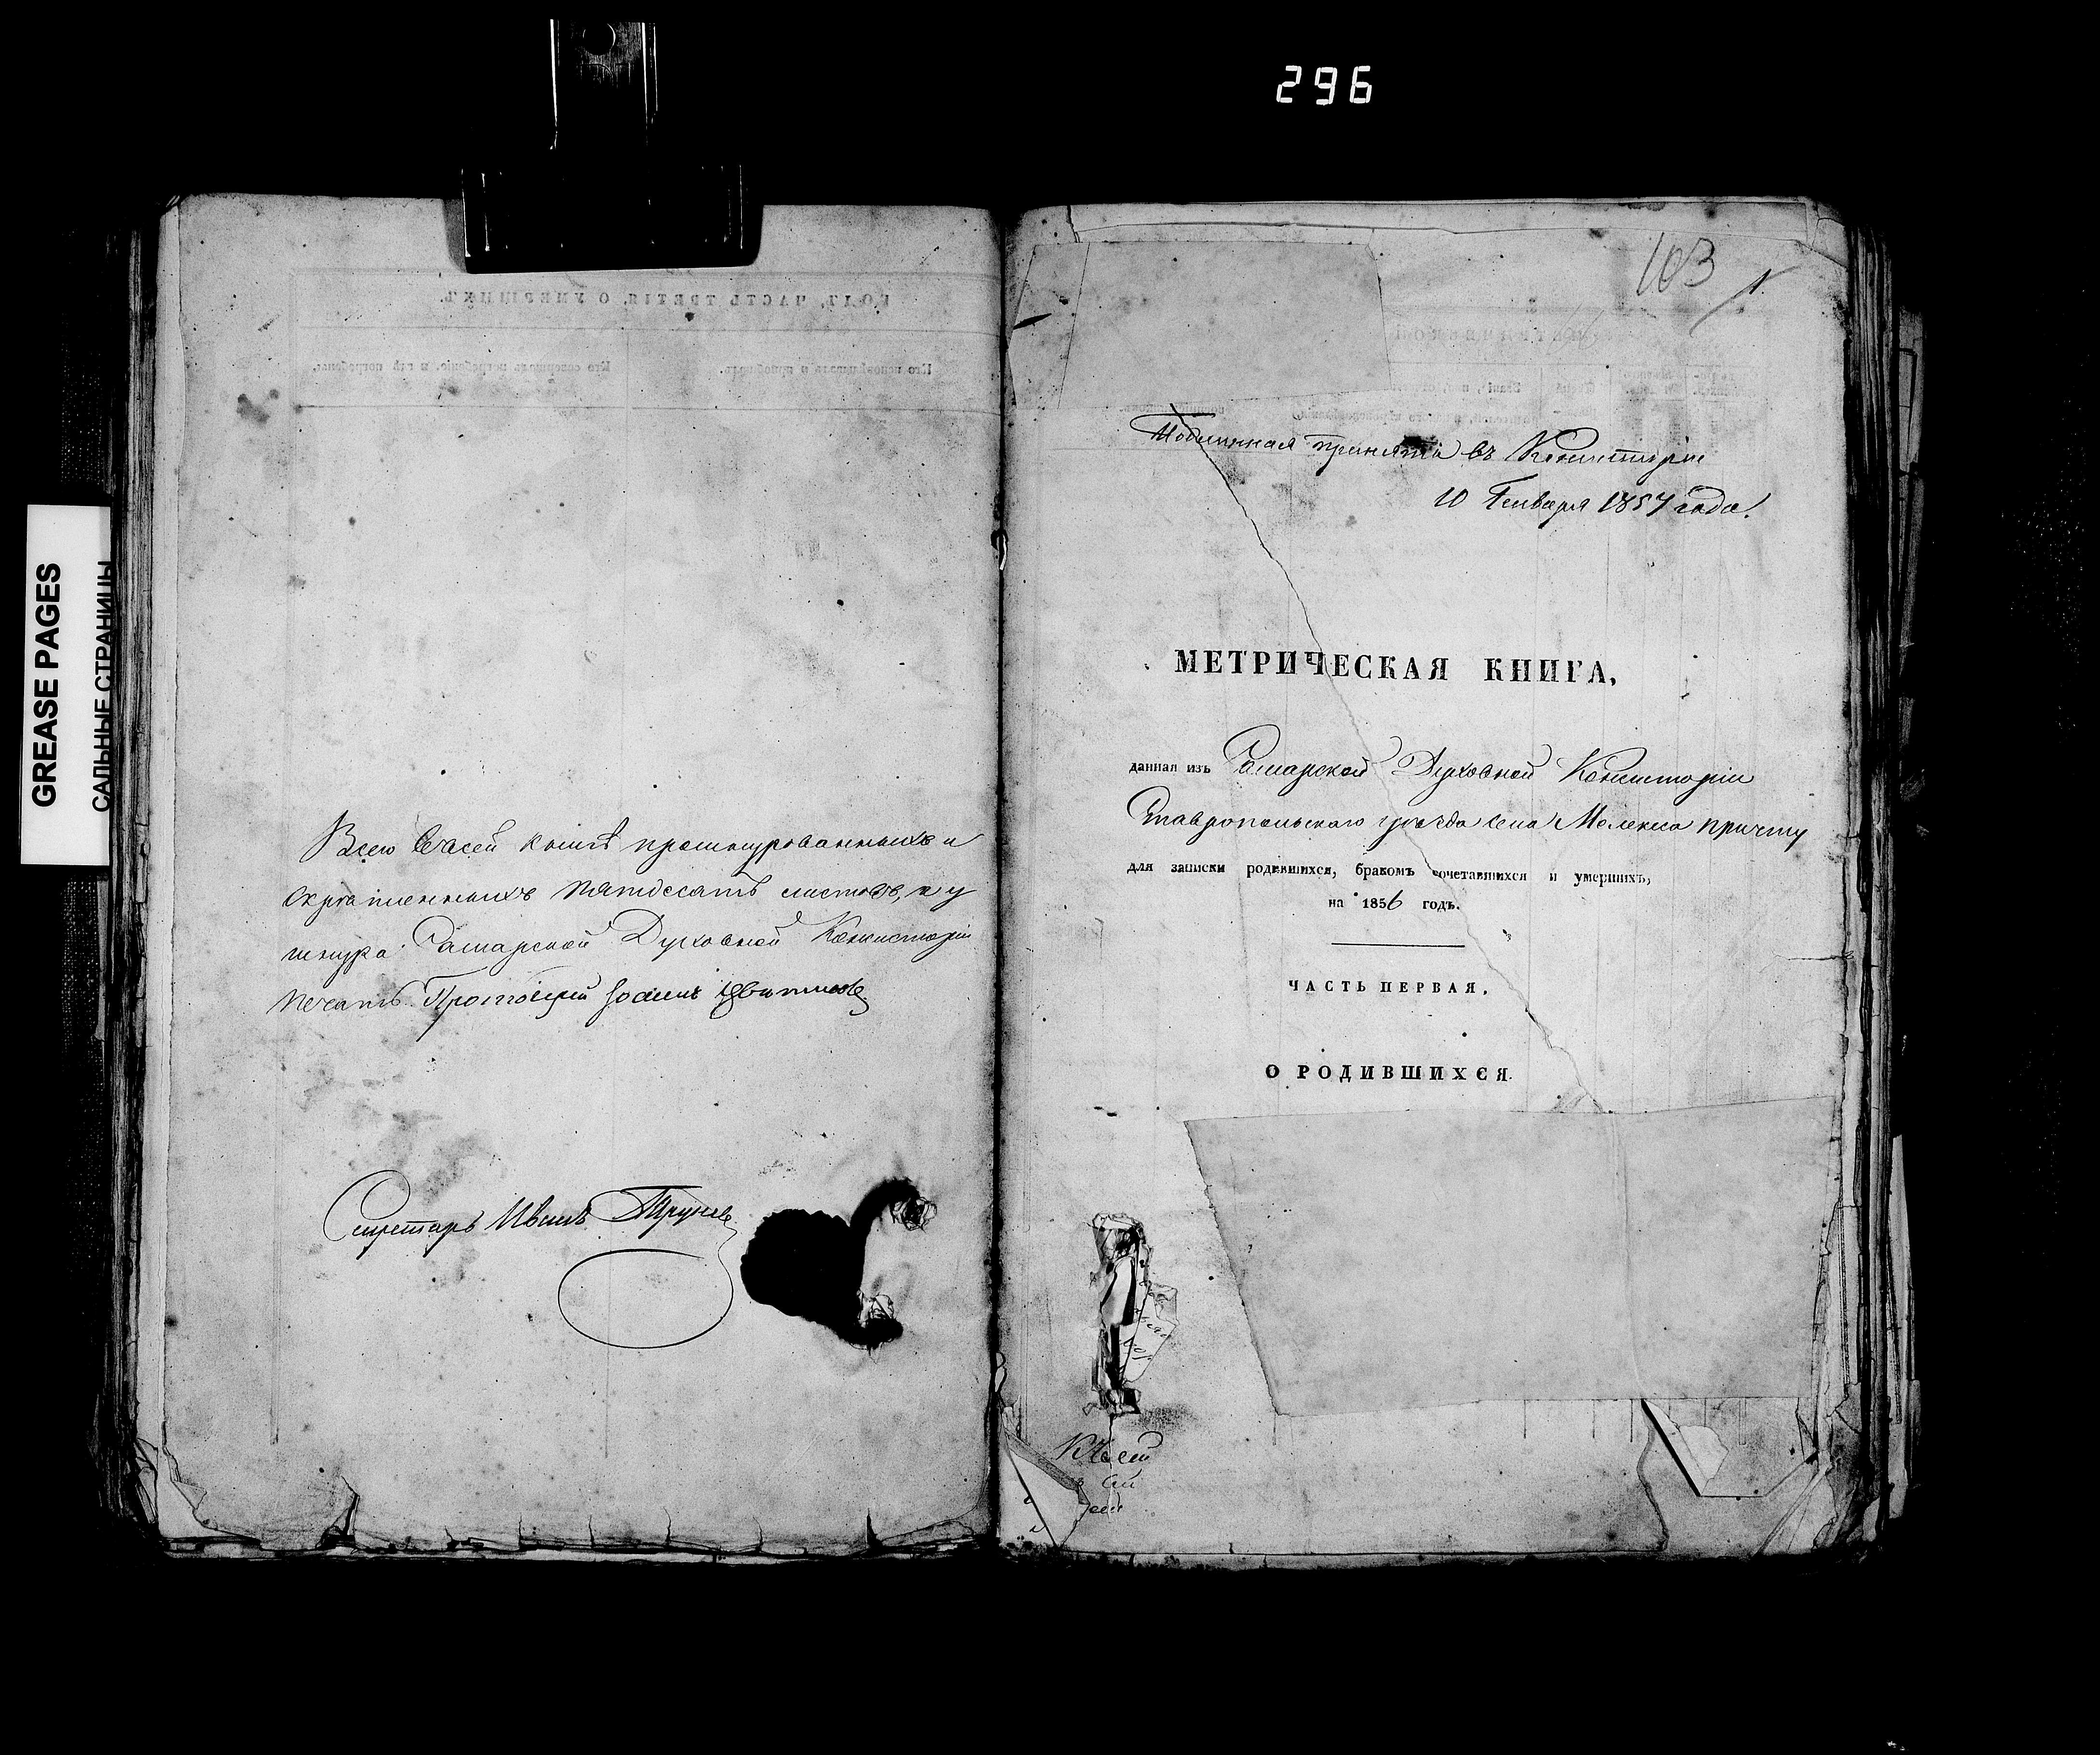 296
GREASE PAGES
САЛЬНЫЕ СТРАНИЦЫ
КОЛТ, ЧАСТЬ ТРЕТІЯ, О УМЕРШИХЪ.
Кто исповѣдывалъ и пріобщалъ.
Кто совершалъ погребеніе, и гдѣ погребены.
Всего въ сей книгѣ прошнурованныхъ и
скрѣпленныхъ пятдесатъ листовъ, и у
шнура Самарской Духовной Консисторіи
печать. Протоіерей Іоаннъ
Секретарь Иванъ
103
1
Подлинная принята въ Консисторіи
10 Генваря 1857 года.
МЕТРИЧЕСКАЯ КНИГА,
данная изъ Самарской Духовной Консисторіи
Ставропольскаго уѣзда села Мелекеса причту
для записки родившихся, бракомъ сочетавшихся и умершихъ,
на 1856 годъ.
ЧАСТЬ ПЕРВАЯ.
О РОДИВШИХСЯ.
Къ сей
сей